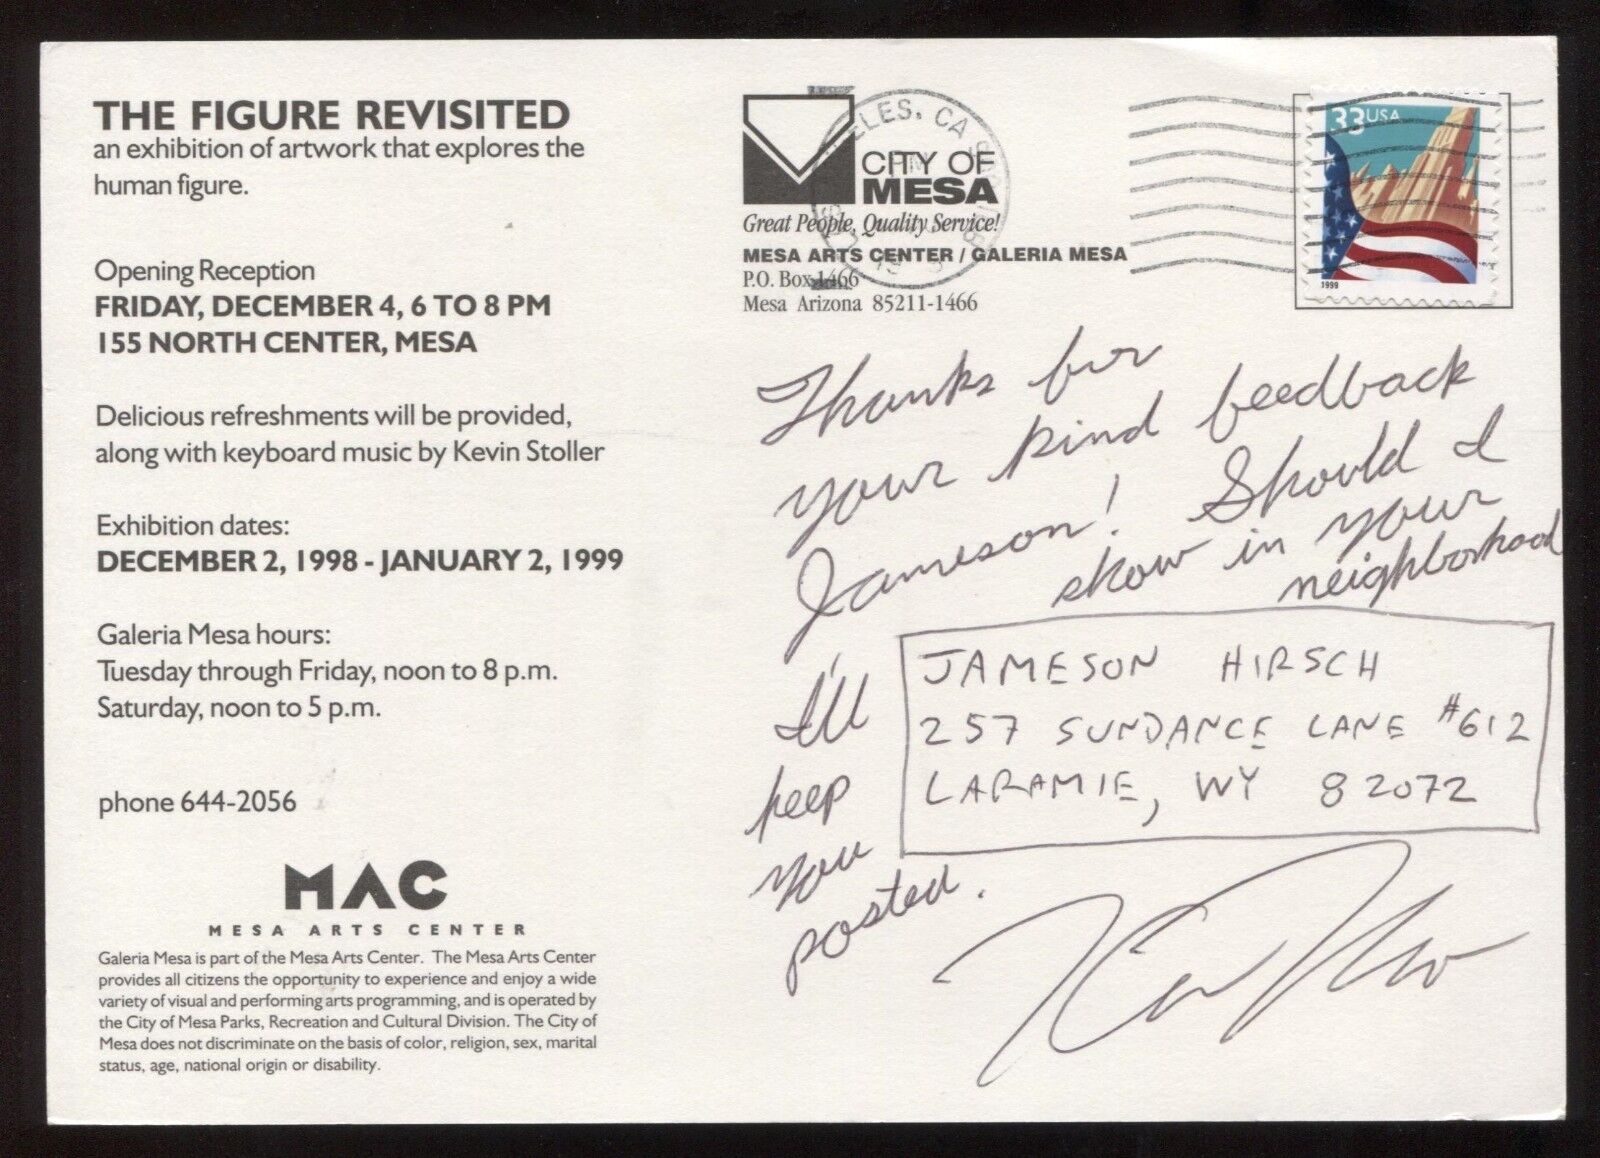 THE FIGURE REVISITED
an exhibition of artwork that explores the
human figure.
Opening Reception
FRIDAY, DECEMBER 4, 6 TO 8 PM
155 NORTH CENTER, MESA
Delicious refreshments will be provided,
along with keyboard music by Kevin Stoller
Exhibition dates:
DECEMBER 2, 1998 - JANUARY 2, 1999
Galeria Mesa hours:
Tuesday through Friday, noon to 8 p.m.
Saturday, noon to 5 p.m.
phone 644-2056
MAC
MESA ARTS CENTER
Galeria Mesa is part of the Mesa Arts Center. The Mesa Arts Center
provides all citizens the opportunity to experience and enjoy a wide
variety of visual and performing arts programming, and is operated by
the City of Mesa Parks, Recreation and Cultural Division. The City of
Mesa does not discriminate on the basis of color, religion, sex, marital
status, age, national origin or disability.
CITY OF
MESA
Great People, Quality Service!
MESA ARTS CENTER / GALERIA MESA
P.O. Box 1466
Mesa Arizona 85211-1466
ELES, CA
33USA
1999
Thanks for
your kind feedback
Jameson! Should I
show in your
neighborhood
I'll
keep
you
posted.
JAMESON HIRSCH
257 SUNDANCE LANE #612
LARAMIE, WY 82072